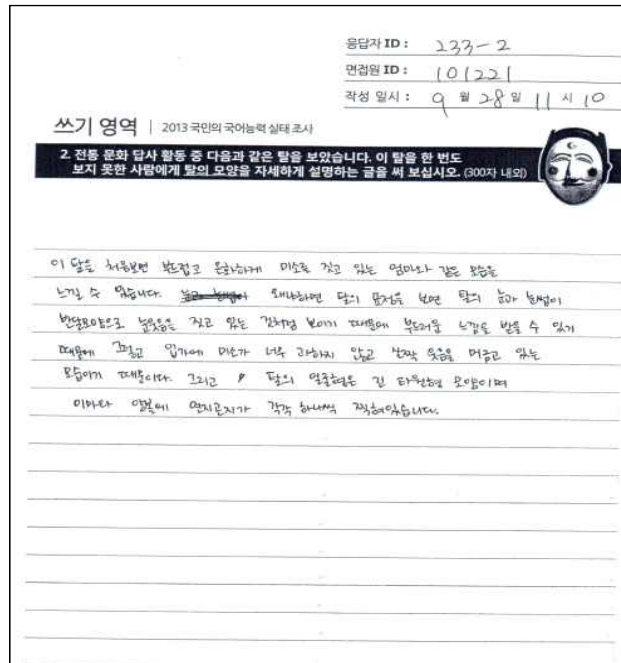 응답자 ID : 233-2
면접원 ID : 101221
작성 일시 : 9 월 28 일 11 시 10
쓰기 영역 | 2013 국민의 국어능력 실태 조사
2. 전통 문화 답사 활동 중 다음과 같은 탈을 보았습니다. 이 탈을 한 번도
보지 못한 사람에게 탈의 모양을 자세하게 설명하는 글을 써 보십시오. (300자 내외)
이 탈을 처음보면 부드럽고 온화하게 미소를 짓고 있는 엄마와 같은 모습을
느낄 수 있습니다. 왜냐하면 탈의 표정을 보면 탈의 눈과 눈썹이
반달모양으로 눈웃음을 짓고 있는 것처럼 보이기 때문에 부드러운 느낌을 받을 수 있기
때문에 그렇고 입가에 미소가 너무 과하지 않고 살짝 웃음을 머금고 있는
모습이기 때문이다. 그리고 탈의 얼굴형은 긴 타원형 모양이며
이마와 양볼에 연지곤지가 각각 하나씩 찍혀있습니다.